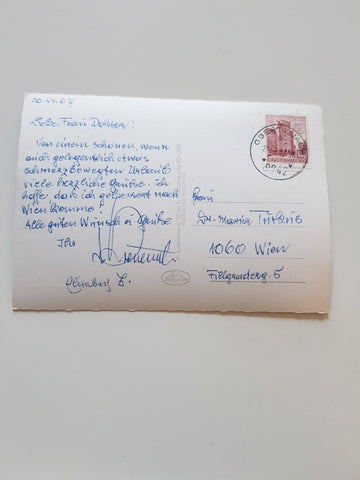 20. VIII. 67
Liebe Frau Doktor!
Von einem schönen, wenn
auch gelegentlich etwas
schmerzbewegten Urlaub
viele herzliche Grüße. Ich
hoffe, daß ich gebessert nach
Wien komme!
Alle guten Wünsche u Grüße
Ihr
Frau
Dr. Maria
1060 Wien
Fillgraderg. 5